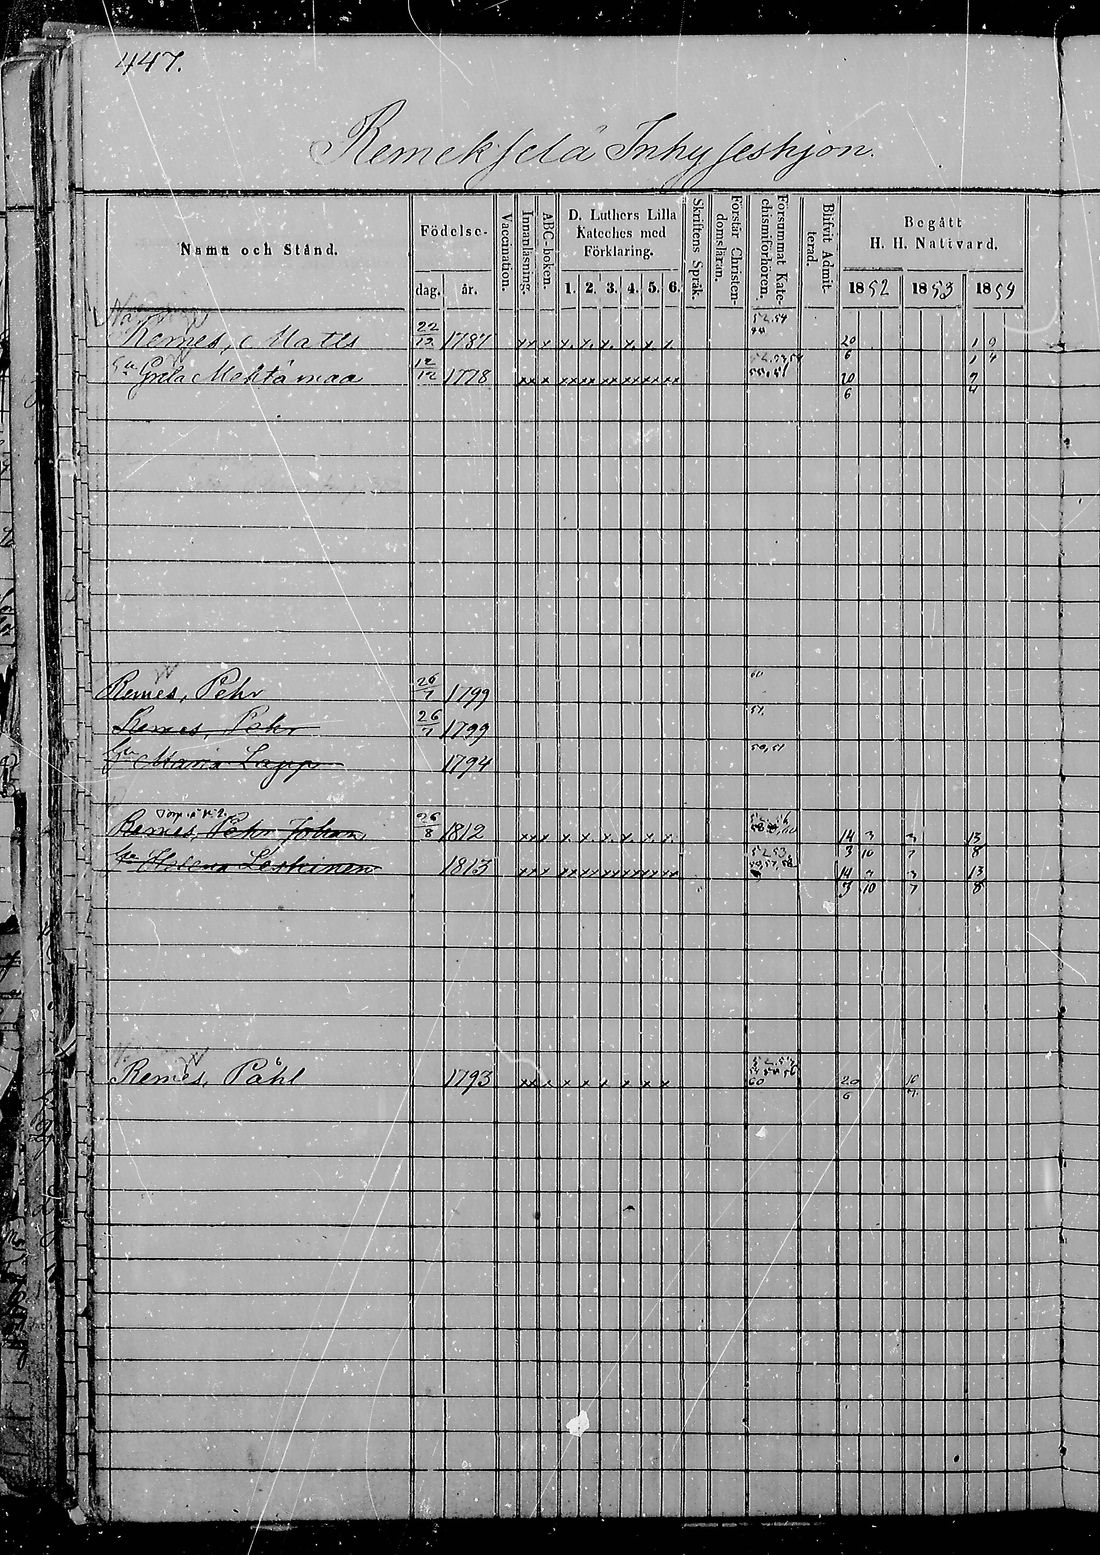 447.
Remeksela Inhyseshjon.
Namn och Stånd.
Födelse-
dag. år.
Vaccination.
Innanläsning.
ABC-boken.
D. Luthers Lilla
Kateches med
Förklaring.
1. 2. 3. 4. 5. 6.
Skriftens Språk.
Förstår Christen-
domsläran.
Försummat Kate-
chismiförhören.
Blifvit Admit-
terad.
Begått
H. H. Nattvard.
1852 1853 1854
Remes, Matts 22/12 1787 x x x x. x. x. x. x. x 20/6
Greta Mahlamaa 12/12 1778 x x x xx xx xx xx xx xx 20/6 7/4
Remes, Pehr 26/7 1799 60
Remes, Pehr 26/7 1799 57.
Maria Lapp 1794 50,51
Remes, Pehr Johan 26/8 1812 x x x x. x. x. x. x. x. 14/3 3/10 3/7 13/8
Helena Leskinen 1813 x x x xx xx xx xx xx xx 14/3 3/10 3/7 13/8
Remes, Påhl 1793 x x x x x x x x x 60 20/6